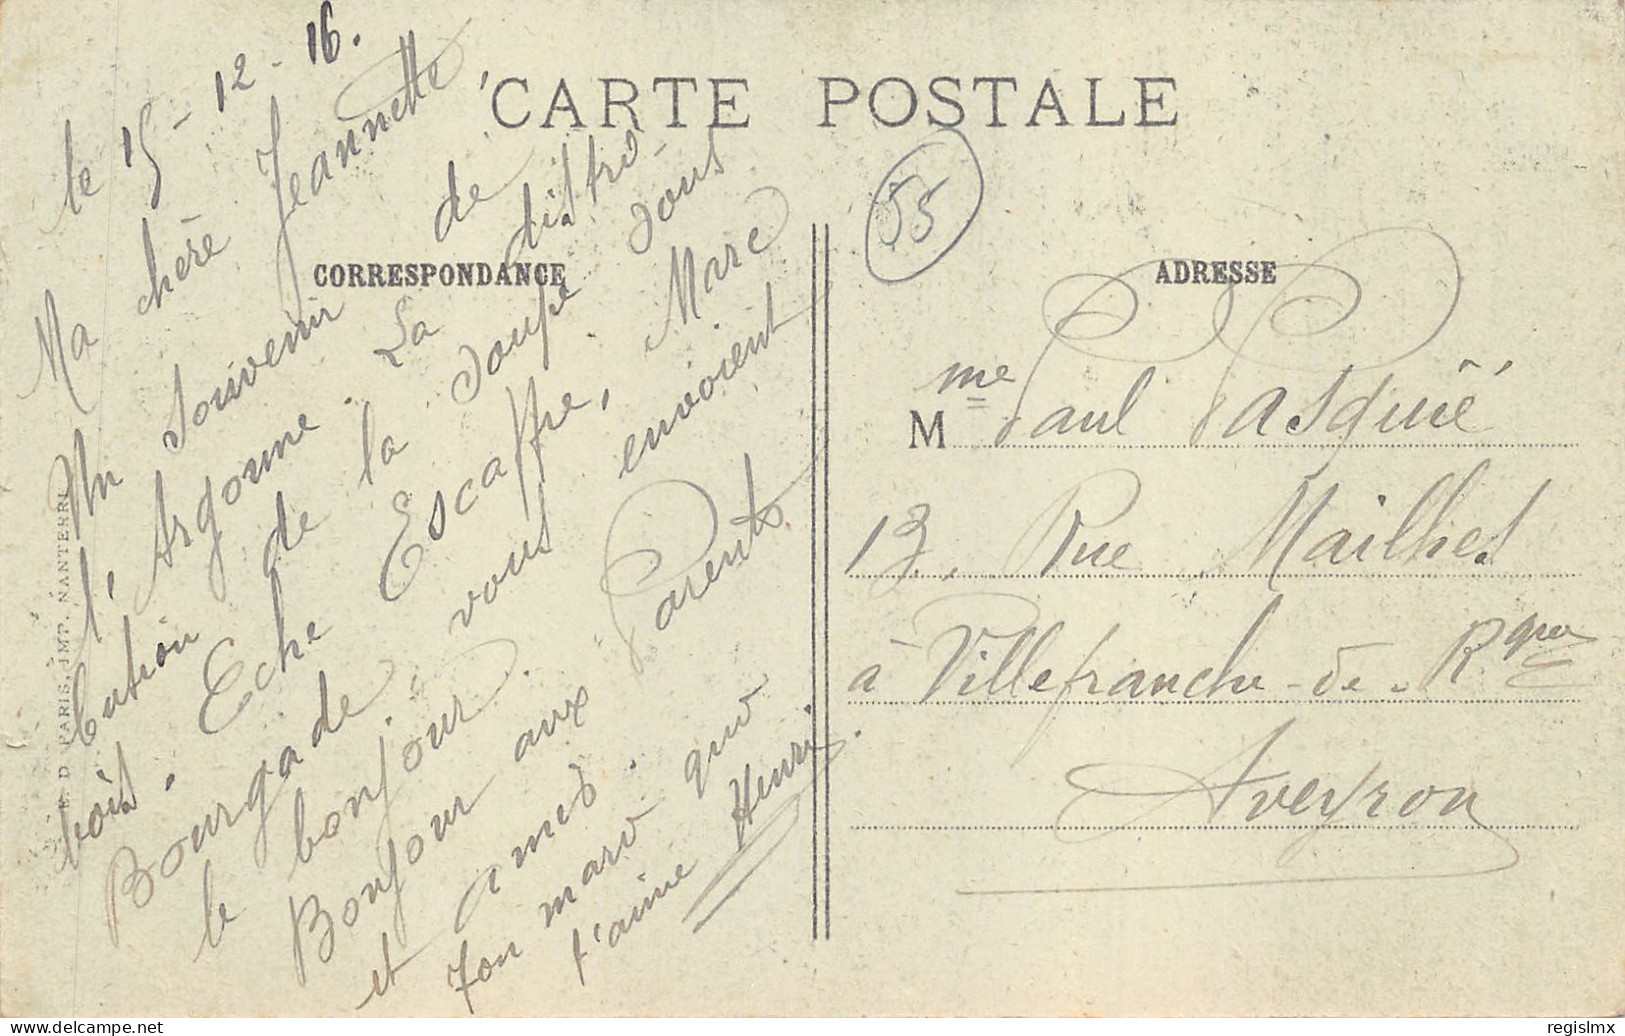 CARTE POSTALE
CORRESPONDANCE
le 15-12-16.
Ma chère Jeannette
Un souvenir de
l'Argonne. La distri
bution de la soupe sous
bois. Eche Escaffre, Marc
Bourgade, vous envoient
le bonjour.
Bonjour aux Parents
et amis.
Ton mari qui
t'aime Henri
55
ADRESSE
M me Paul Pasquié
13, Rue Mailhes
à Villefranche-de-Rgue
Aveyron
E. D. PARIS, JMT. NANTERRE
delcampe.net
regislmx